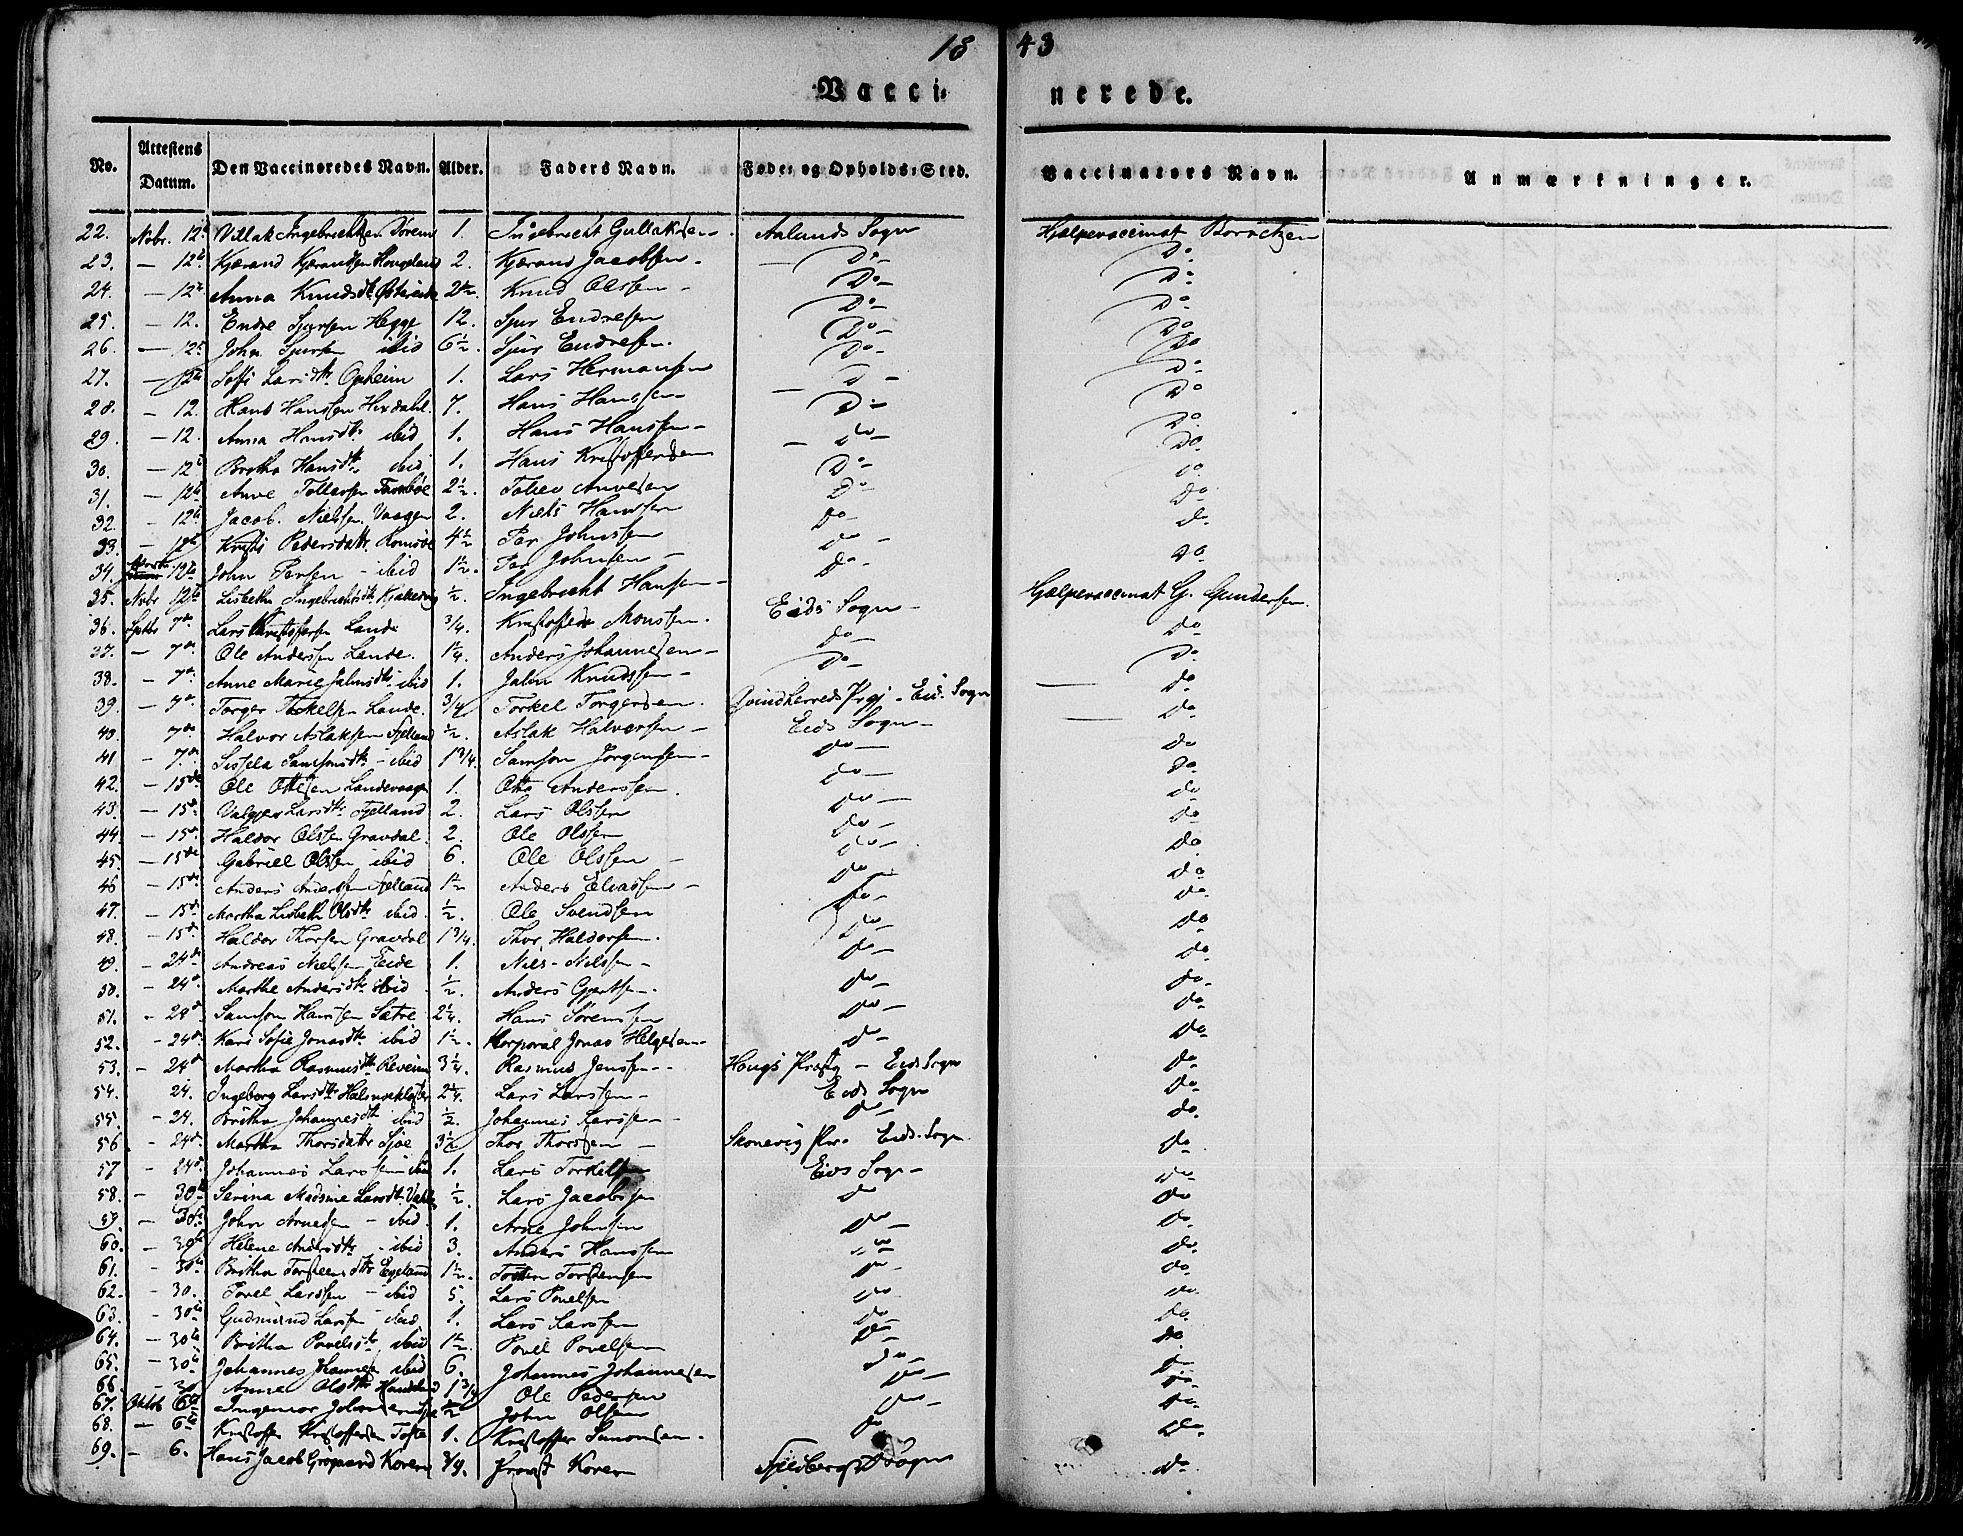 18 43
Vacci- nerede.
No. Attestens Datum. Den Vaccineredes Navn. Alder. Faders Navn. Føde- og Opholds-Sted. Vaccinators Navn. Anmærkninger.
22. Nobr. 12te Ingebrichtsen 1. Ingebricht Gullaksen Aalunds Sogn Hjelpevaccinat
23. — 12te Kjærand Kjærandsen Hougeland 2. Kjærand Jacobsen — Do — Do
24. — 12te Anna Knudsdtr 2½. Knud Olsen — Do — Do
25. — 12. Endre Sjursen Hegge 12. Sjur Endresen Do — Do
26. — 12te John Sjursen ibid 6½. Sjur Endresen. Do — Do
27. — 12te Larsdtr Opheim 1. Lars Hermansen Do — Do
28. — 12. Hans Hanssen 7. Hans Hanssen — Do — Do
29. — 12. Anna Hansdtr ibid 1. Hans Hanssen — Do — Do
30. — 12te Britha Hansdtr ibid 1. Hans Kristoffersen do — Do
31. — 12te Arne Tollefsen 2½. Do — Do
32. — 12te Jacob Nielsen Vaagen 2. Niels Hanssen Do — Do
33. — 12te Pedersdattr 4½ Per Johnssen do — do
34. 12te John Persen — ibid 1½. Per Johnsen — do — Do
35. Nobr 12te Lisbetha Ingebrichtsdtr ½. Ingebricht Hansen — do — Hjælpevaccinat G. Gundersen.
36. Septbr 7de Lars Kristoffersen Lande ¾. Kristoffer Monssen. Eids Sogn — do
37. — 7de Ole Anderssen Lande. 1¼. Anders Johannesen — do — Do
38. — 7de Anne Marie ibid 1. Knudssen — Do — Do
39. — 7de Torger Torkelsen Lande. ¾ Torkel Torgersen. Qvindherreds Prgj — Eid. Sogn Do
40. 7de Halvor Aslaksen Fjelland ½. Aslak Halvorsen — Eids Sogn — do
41 — 7de Sissela Samsonsdtr — ibid 1¾. Samson Jørgensen — do — do
42. — 15de Ole Ottesen Landevaage 1. Otto Anderssen. do — do
43. — 15de Valgjer Larsdtr Fjelland 2. Lars Olssen do — do
44. — 15de Haldor Olssen Gravdal 2. Ole Olssen do — do
45. — 15de Gabriel Olssen ibid 6. Ole Olssen — do — do
46 — 15de Anders Anderssen Fjelland 1½ Anders — do — do
47. — 15de Martha Lisbeth Olsdtr ibid. ½. Ole Svendsen do — do
48. — 15de Haldor Thorsen Gravdal 1¾. Thor Haldorsen. do — do
49. — 24de Andreas Nielsen Eide 1. Niels Nilssen — do — do
50. — 24de Marthe Andersdtr ibid ½. Anders Gjertsen. do — do
51. — 24de Samson Hanssen Sætre 2¼. Hans Sørenssen do — do
52. — 24de Kari Sofie Jonasdtr ibid 1½. Korporal Jonas Helgesen — do — do
53. — 24de Martha Rasmusdtr 3¼. Rasmus Jenssen — Hougs Præstg — Eids Sogn do
54. 24. Ingeborg Larsdtr Halsnøekloster 2¼. Lars Larssen — Eids Sogn do
55. — 24. Britha Johannesdtr ibid ½. Johannes Larssen — do — do
56. — 24de Martha Thorsdattr 3½ Thor Thorssen — Skonevig Pr. Eids. Sogn. do
57 — 24de Johannes Larssen ibid 1. Lars Torkelsen Eids Sogn — do
58. — 30te Serina Madsine Larsdtr ½. Lars Jacobssen do do
59. — 30te John Arnessen — ibid. 1. Arne Johnssen do — do
60. — 30te Helene Andersdtr — ibid 3. Anders Hanssen do
61. — 30te Britha Torsteensdtr Egeland 1½. Torsten Torstensen do — do
62. — 30. Povel Larssen — ibid 5. Lars Povelsen do — do
63. — 30te Gudmund Larssen — ibid. 1. Lars Larssen do do
64. — 30te Britha Povelsdtr ibid 1½. Povel Povelsen do — do
65. — 30te Johannes Johannesen ibid 6. Johannes Johannesen do — do
66. — 30 Anne Olsdtr 1¾ Ole Pedersen do — do
67. Oktob 6te Ingemor ½ John Olsen do — do
68. — 6te Kristoffer Kristoffersen Tofte 1. Kristoffer Simonsen. do Do
69. — 6. Hans Jacob Grøgaard Koren ¾. Provst Koren Fjeldbergs Sogn do